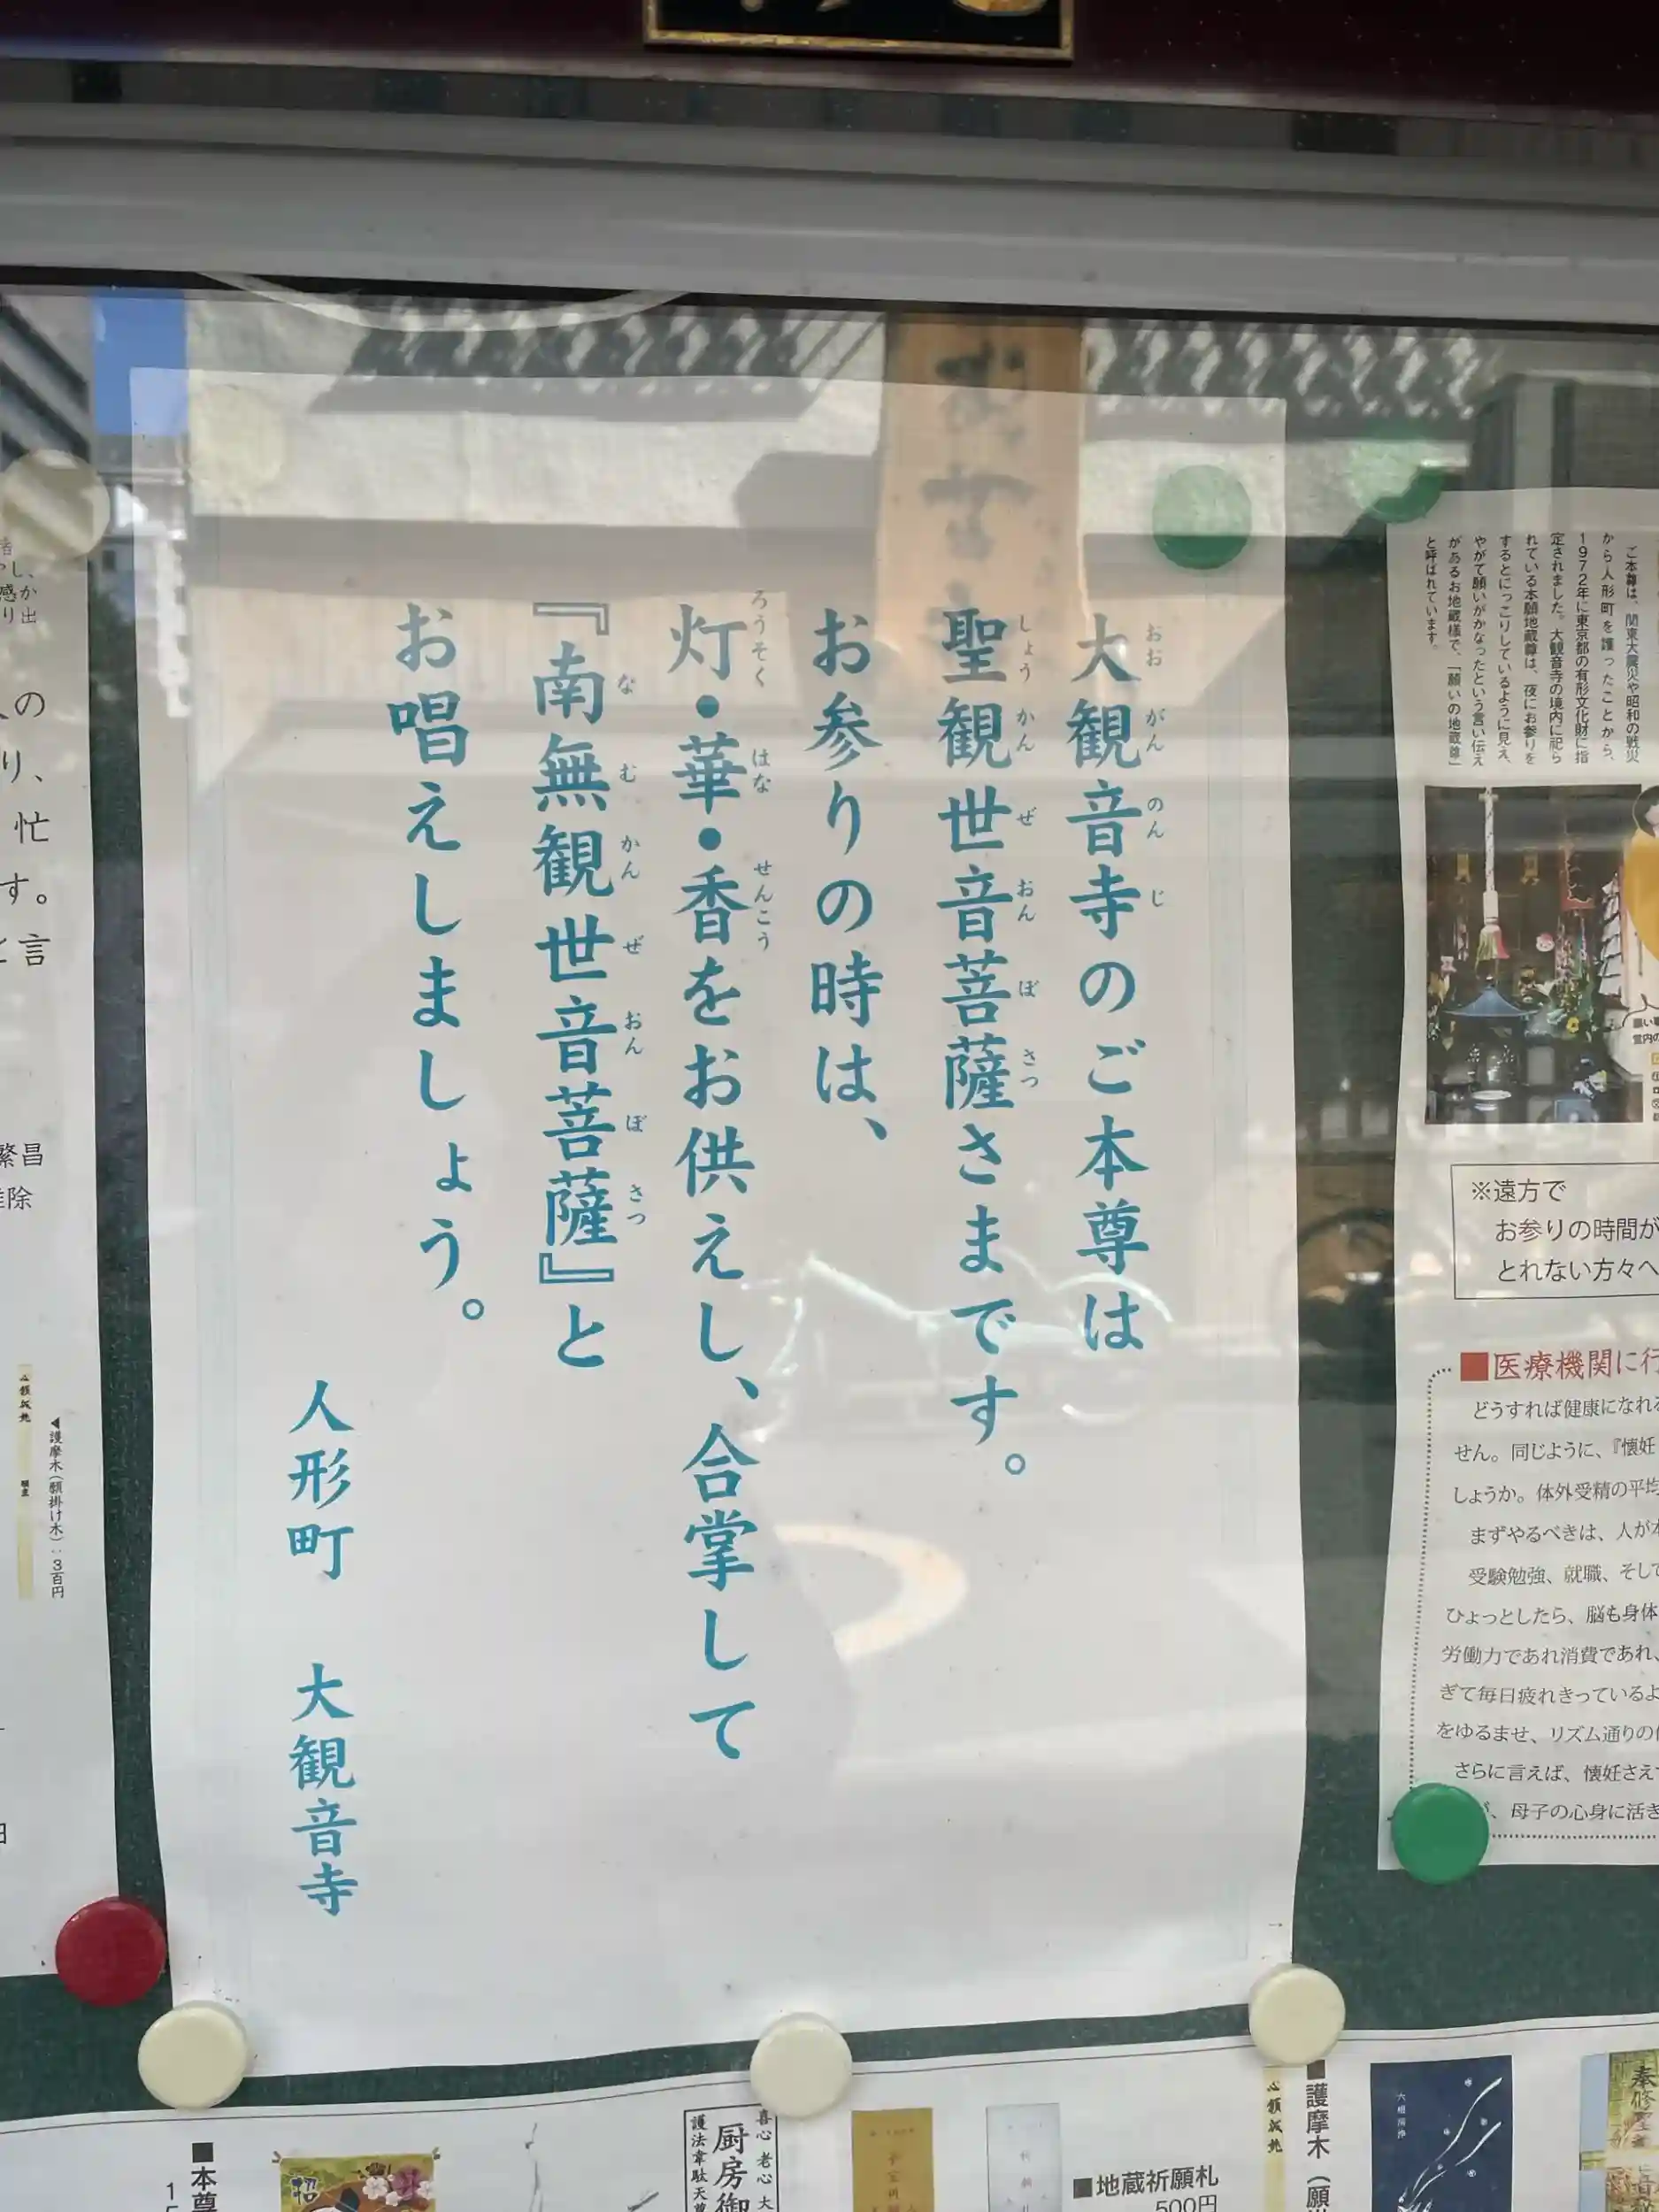 大観音寺のご本尊は
聖観世音菩薩さまです。
お参りの時は、
灯・華・香をお供えし、合掌して
『南無観世音菩薩』と
お唱えしましょう。
人形町 大観音寺
おお がん のん じ
しょう かん ぜ おん ぼ さつ
ろうそく はな せんこう
な む かん ぜ おん ぼ さつ
ご本尊は、関東大震災や昭和の戦災
から人形町を護ったことから、
1972年に東京都の有形文化財に指
定されました。大観音寺の境内に祀ら
れている本願地蔵尊は、夜にお参りを
するとにっこりしているように見え、
やがて願いがかなったという言い伝え
があるお地蔵様で、「願いの地蔵尊」
と呼ばれています。
※遠方で
お参りの時間が
とれない方々へ
■医療機関に行
どうすれば健康になれる
せん。同じように、『懐妊
しょうか。体外受精の平均
まずやるべきは、人が本
受験勉強、就職、そして
ひょっとしたら、脳も身体
労働力であれ消費であれ、
ぎて毎日疲れきっているよ
をゆるませ、リズム通りの
さらに言えば、懐妊さえ
が、母子の心身に活き
り出
の
り、
忙
す。
と言
繁昌
除
◀護摩木(願掛け木):3百円
■本尊
厨房御
喜心 老心 大
護法韋駄天尊
■地蔵祈願札
500円
■護摩木(願
六根清浄
奉修聖
招